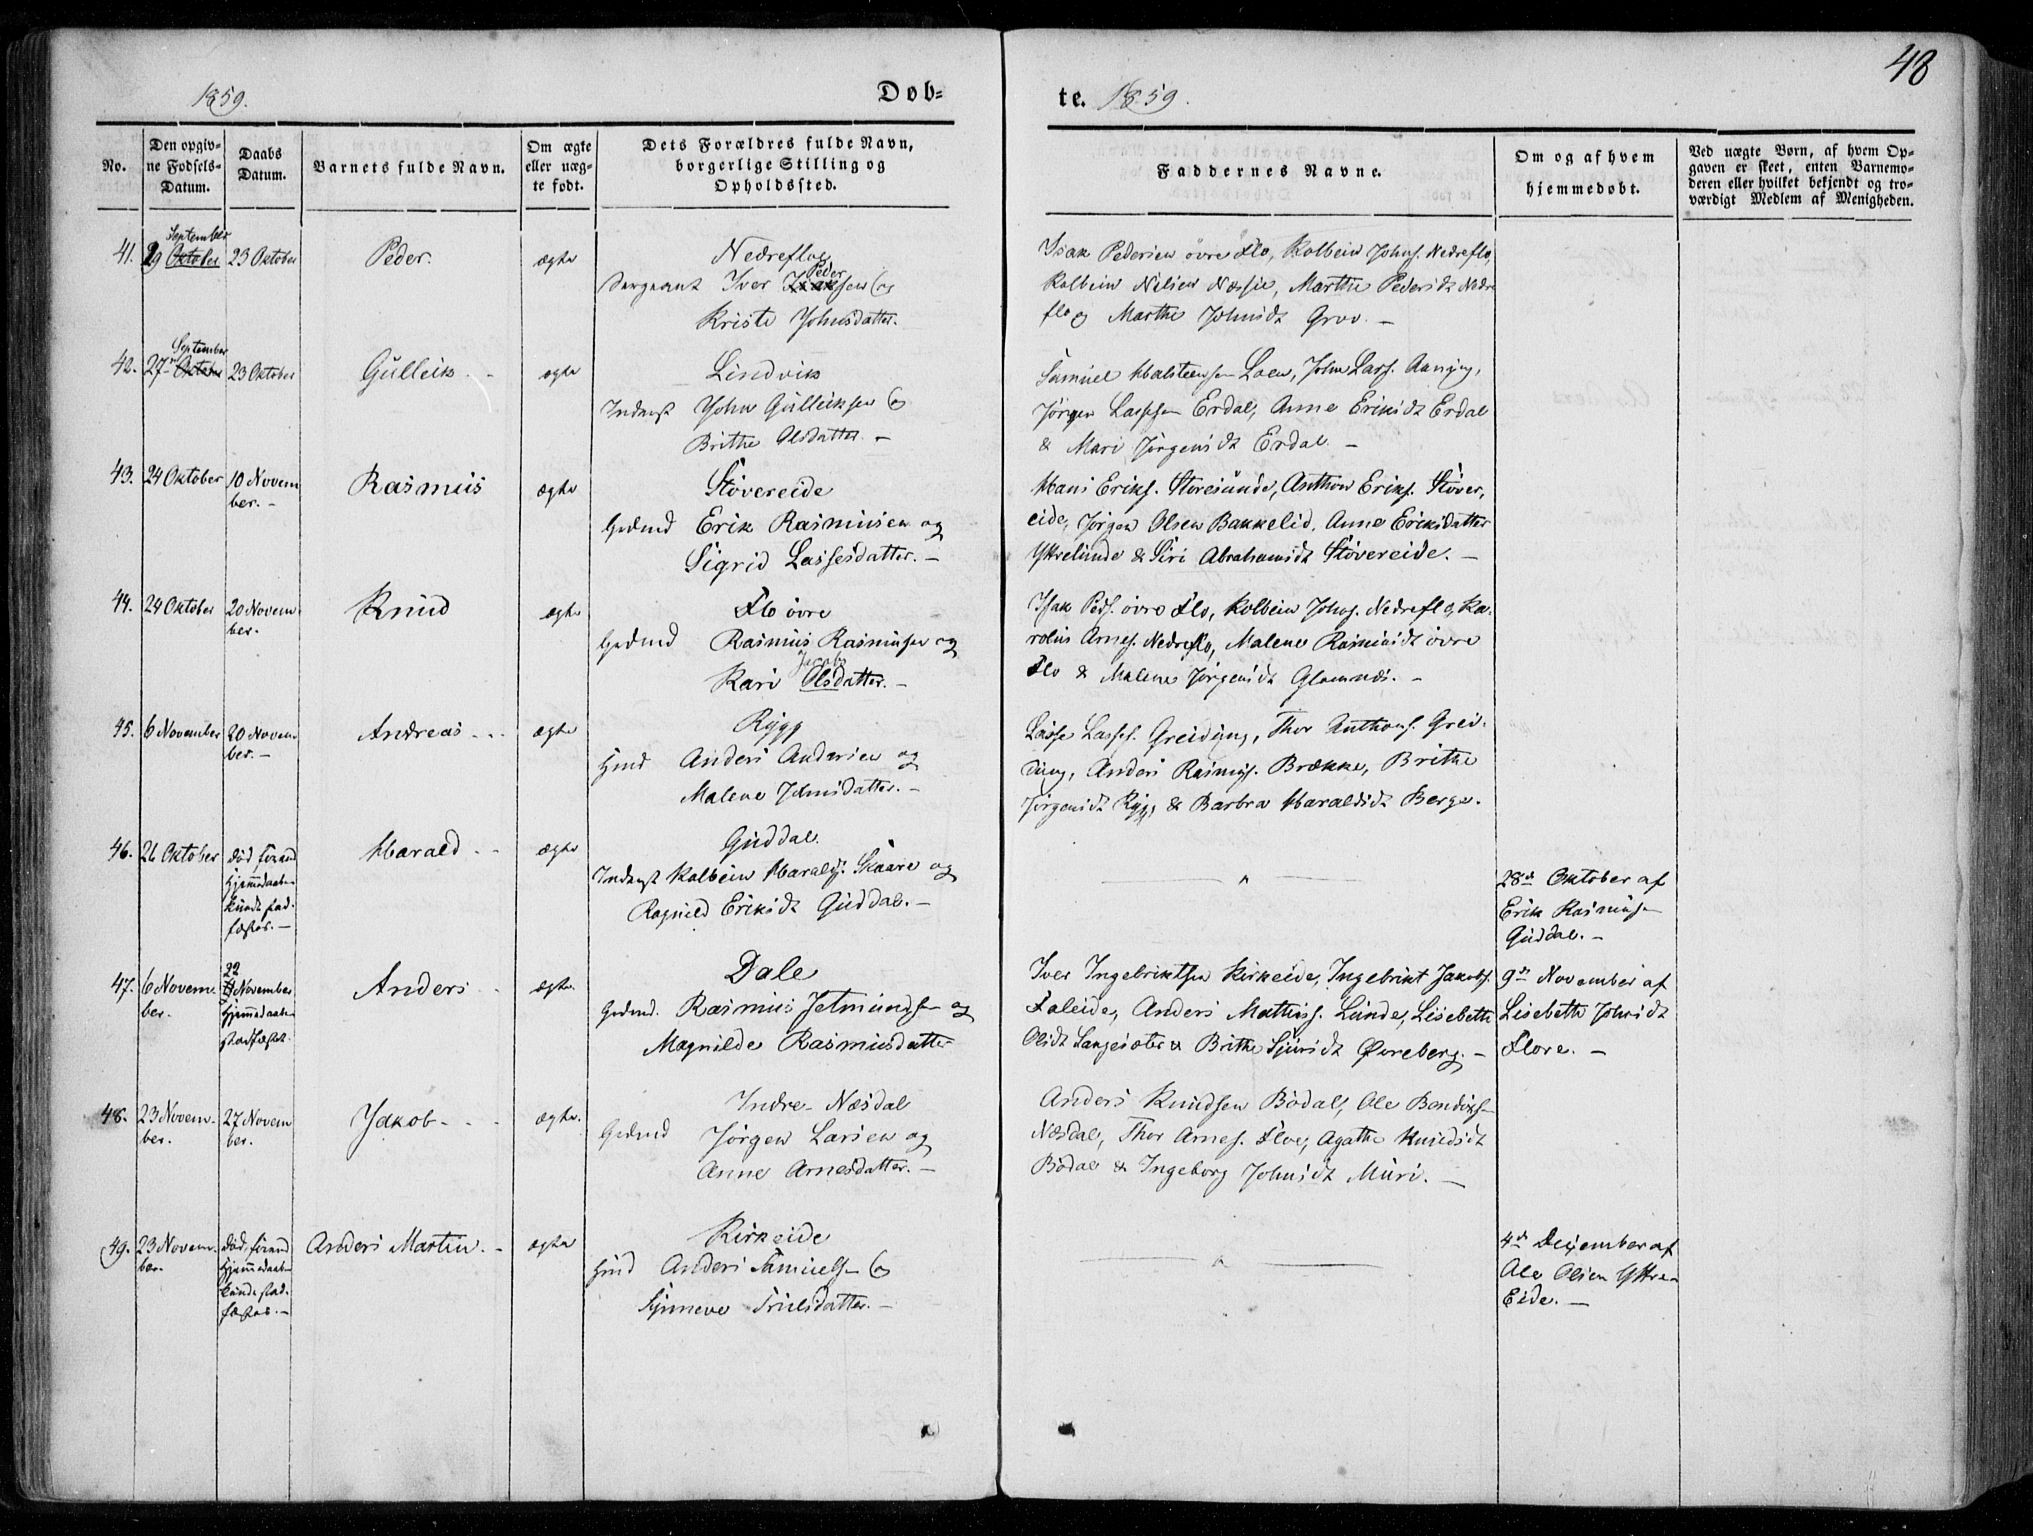 48
1859.
Døb=
te. 1859.
No.
Den opgiv-
ne Fødsels-
Datum.
Daabs
Datum.
Barnets fulde Navn.
Om ægte
eller uæg-
te født.
Dets Forældres fulde Navn,
borgerlige Stilling og
Opholdssted.
Faddernes Navne.
Om og af hvem
hjemmedøbt.
Ved uægte Børn, af hvem Op-
gaven er skeet, enten Barnemo-
deren eller hvilket bekjendt og tro-
værdigt Medlem af Menigheden.
41.
September
29 Oktober
23 Oktober
Peder.
ægte
Nedreflo
Sergeant Iver Isaksen Peder og
Kristi Johnsdatter.
Isak Pedersen øvre Flo, Kolbein Johns. Nedreflo,
Kolbein Nilsen Næssie, Marthe Pedersdt Nedre
flo og Marthe Johnsdt Grov. -
42.
September
27de Oktober
23 Oktober
Gulleik
ægte
Lindvik
Inderst John Gulleiksen og
Brithe Olsdatter. -
Samuel Halsteensen Loen, John Lass.
Jørgen Lassesen Erdal, Anne Eriksdt Erdal
& Mari Jørgensdt Erdal. -
43.
24 Oktober
10 Novem
ber. -
Rasmus
ægte
Støvereide
Gdmd Erik Rasmussen og
Sigrid Lassesdatter. -
Hans Eriks. Storesunde, Anthon Eriks. Støver,
eide, Jørgen Olsen Bakkelid, Anne Eriksdatter
Ytrelunde & Siri Abrahamsdt Støvereide. -
44.
24 Oktober
20 Novem-
ber.
Knud
ægte
Flo øvre
Gdmd Rasmus Rasmussen og
Jacobs
Kari Olsdatter. -
Isak Peds. øvre Flo, Kolbein Johns. Nedreflo, Ka-
rolus Arnes. Nedreflo, Malene Rasmusdt øvre
Flo & Malene Jørgensdt Glomnæs. -
45.
6 November
20 Novem
ber. -
Andreas
ægte
Rygg
Hmd Anders Andersen og
Malene Johnsdatter. -
Lasse Lasses. Greiding, Thor Anthons. Grei-
ding, Anders Rasmus. Brække, Brithe
Jørgensdt Rygg & Barbra Haraldsdt Berge.
46.
26 Oktober
død førend
Hjemmedaaben
kunde stad-
fæstes. -
Harald
ægte
Guddal.
Inderst Kolbein Haralds. Skaare og
Ragnild Eriksdt Guddal. -
28de Oktober af
Erik Rasmusen
Guddal. -
47.
6 Novem-
ber.
22
November
Hjemmedaaben
stadfæstet.
Anders
ægte
Dale
Gdmd. Rasmus Jetmundsen og
Magnilde Rasmusdatter
Iver Ingebriktsen Kirkeide, Ingebrikt Jakobs.
Faleide, Anders Mathiss. Lunde, Lisebeth
Olsdt Sangesæter & Brithe Sjursdt Øvreberg. -
9de November af
Lisebeth Johnsdt
Flore. -
48.
23 Novem-
ber.
27 Novem
ber.
Jakob
ægte.
Indre Næsdal
Gdmd Jørgen Larsen og
Anne Arnesdatter. -
Anders Knudsen Bødal, Ole Bendixsen
Næsdal, Thor Arnes. Floe, Agathe Knudsdt
Bødal & Ingeborg Johnsdt Muri. -
49.
23 Novem-
ber.
død førend
Hjemmedaaben
kunde stad-
fæstes. -
Anders Martin. -
ægte
Kirkeide
Hmd Anders Samuelsen og
Synneve Trulsdatter. -
4de December af
Ole Olsen Yttre
Eide. -